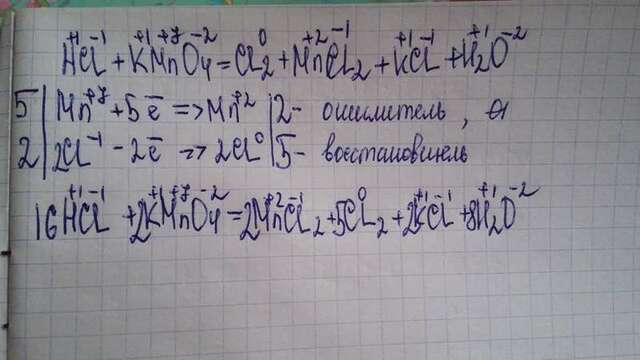 H⁺¹Cl⁻¹ + K⁺¹Mn⁺⁷O₄⁻² = Cl₂⁰ + Mn⁺²Cl₂⁻¹ + K⁺¹Cl⁻¹ + H₂⁺¹O⁻²
5 | Mn⁺⁷ + 5e̅ => Mn⁺² | 2 - окислитель,
2 | 2Cl⁻¹ - 2e̅ => 2Cl⁰ | 5 - восстановитель
16H⁺¹Cl⁻¹ + 2K⁺¹Mn⁺⁷O₄⁻² = 2Mn⁺²Cl₂⁻¹ + 5Cl₂⁰ + 2K⁺¹Cl⁻¹ + 8H₂⁺¹O⁻²